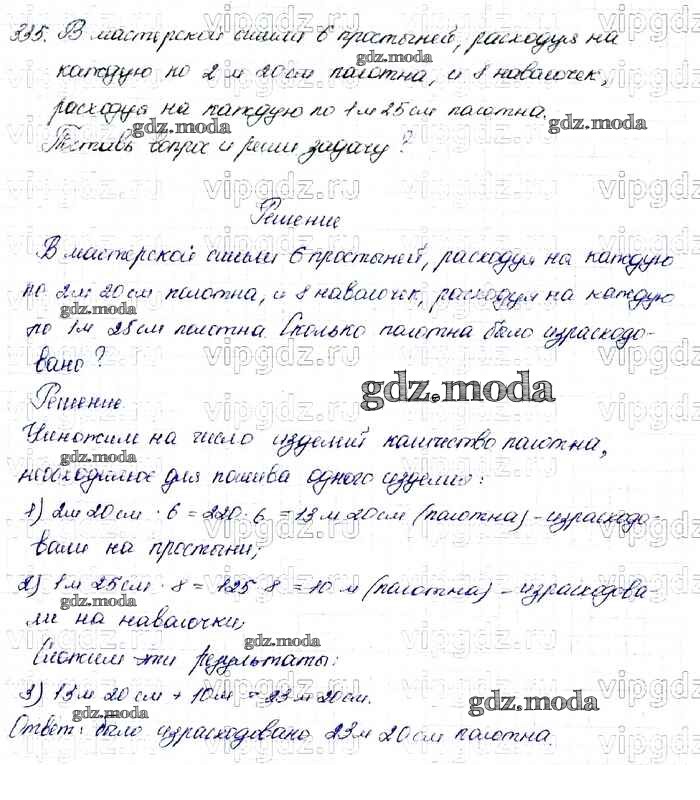 335. В мастерской сшили 6 простыней, расходуя на
каждую по 2 м 20 см полотна, и 8 наволочек,
расходуя на каждую по 1 м 25 см полотна.
Поставь вопрос и реши задачу?
Решение
В мастерской сшили 6 простыней, расходуя на каждую
по 2 м 20 см полотна, и 8 наволочек, расходуя на каждую
по 1 м 25 см полотна. Сколько полотна было израсходо-
вано?
Решение
Умножим на число изделий количество полотна,
необходимое для пошива одного изделия:
1) 2 м 20 см · 6 = 220 · 6 = 13 м 20 см (полотна) – израсходо-
вали на простыни;
2) 1 м 25 см · 8 = 125 · 8 = 10 м (полотна) – израсходова-
ли на наволочки;
Сложим эти результаты:
3) 13 м 20 см + 10 м = 23 м 20 см.
Ответ: было израсходовано 23 м 20 см полотна.
gdz.moda
vipgdz.ru